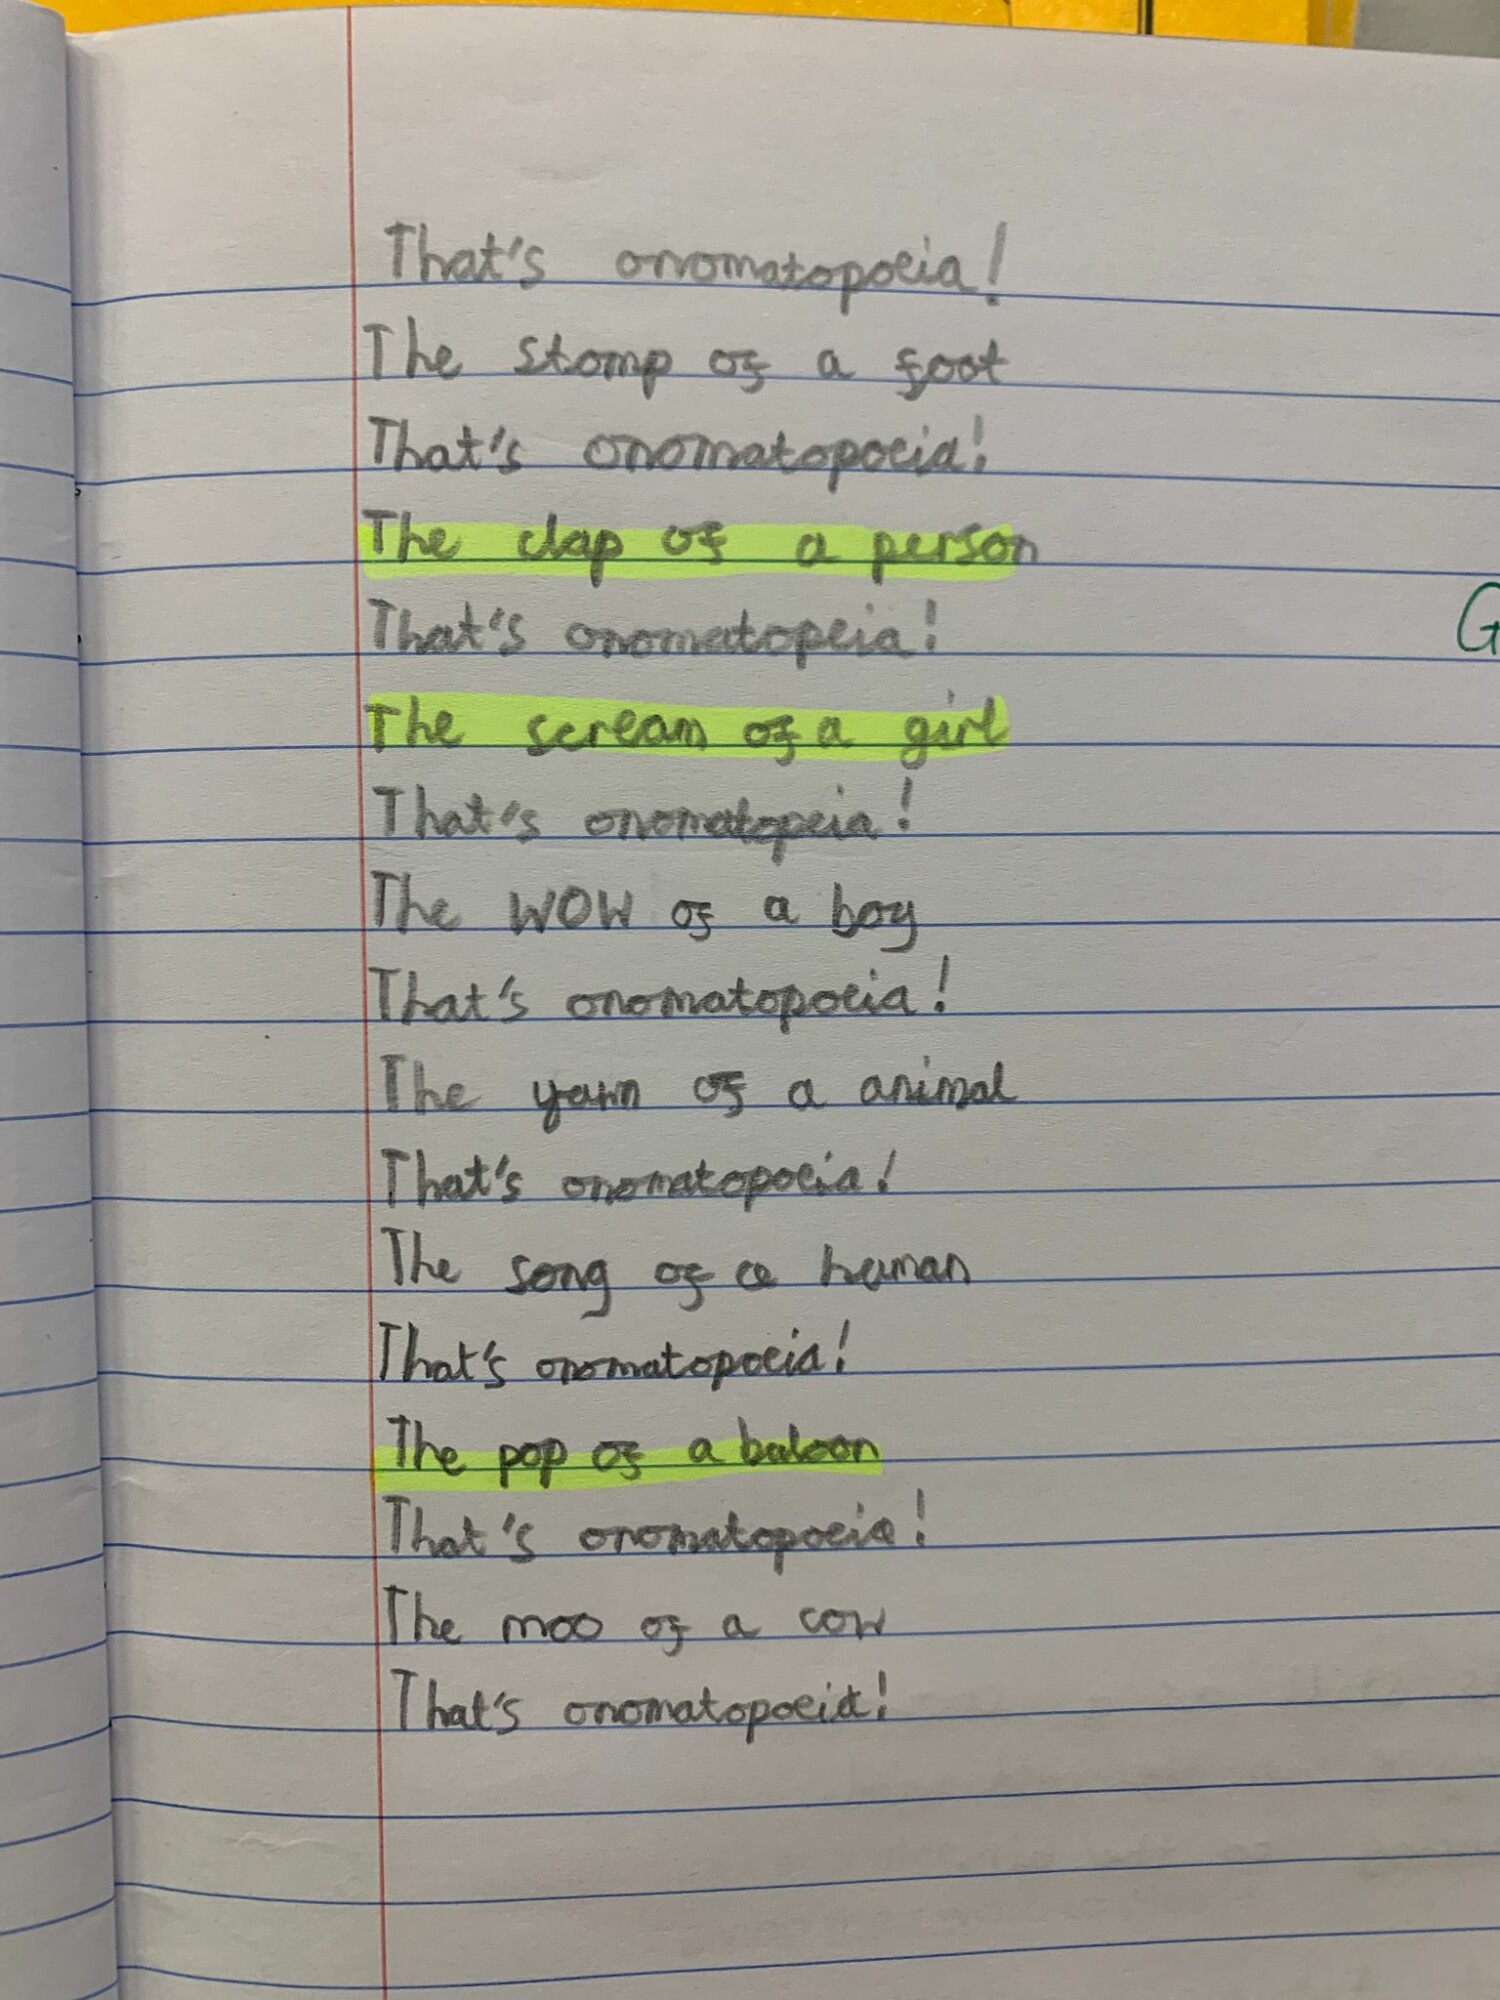 That's onomatopoeia!
The stomp of a foot
That's onomatopoeia!
The clap of a person
That's onomatopeia!
G
The scream of a girl
That's onomatopeia!
The WOW of a boy
That's onomatopoeia!
The yawn of a animal
That's onomatopoeia!
The song of a human
That's onomatopoeia!
The pop of a baloon
That's onomatopoeia!
The moo of a cow
That's onomatopoeia!